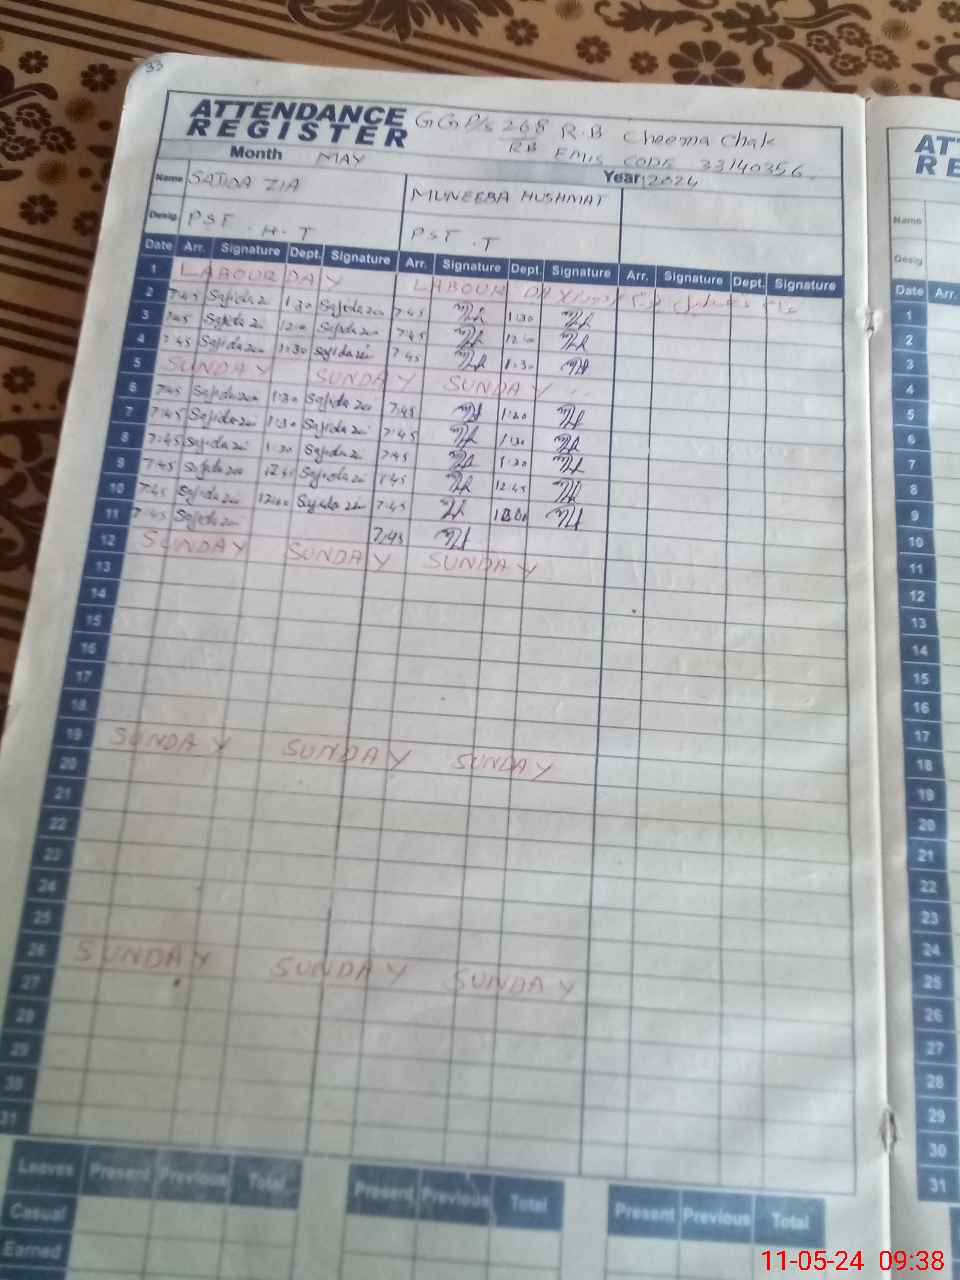 33
ATTENDANCE REGISTER
GGP/s 268 R.B Cheema Chak
RB EMIS CODE 33140356
Month MAY Year 2024
Name SAJIDA ZIA MUNEEBA HUSHMAT
Desig. PST . H . T PST . T
Date Arr. Signature Dept. Signature Arr. Signature Dept. Signature Arr. Signature Dept. Signature
1 LABOUR DAY LABOUR DAY
2 7:45 Sajida Zia 1:30 Sajida Zia 7:45 1:30
3 7:45 Sajida Zia 12:00 Sajida Zia 7:45 12:00
4 7:45 Sajida Zia 1:30 Sajida Zia 7:45 1:30
5 SUNDAY SUNDAY SUNDAY
6 7:45 Sajida Zia 1:30 Sajida Zia 7:45 1:30
7 7:45 Sajida Zia 1:30 Sajida Zia 7:45 1:30
8 7:45 Sajida Zia 1:30 Sajida Zia 7:45 1:30
9 7:45 Sajida Zia 12:45 Sajida Zia 7:45 12:45
10 7:45 Sajida Zia 12:00 Sajida Zia 7:45
11 7:45 Sajida Zia 7:45
12 SUNDAY SUNDAY SUNDAY
13
14
15
16
17
18
19 SUNDAY SUNDAY SUNDAY
20
21
22
23
24
25
26 SUNDAY SUNDAY SUNDAY
27
28
29
30
31
Leaves Present Previous Total Present Previous Total Present Previous Total
Casual
Earned
AT
RE
Name
Desig
Date Arr.
1
2
3
4
5
6
7
8
9
10
11
12
13
14
15
16
17
18
19
20
21
22
23
24
25
26
27
28
29
30
31
11-05-24 09:38